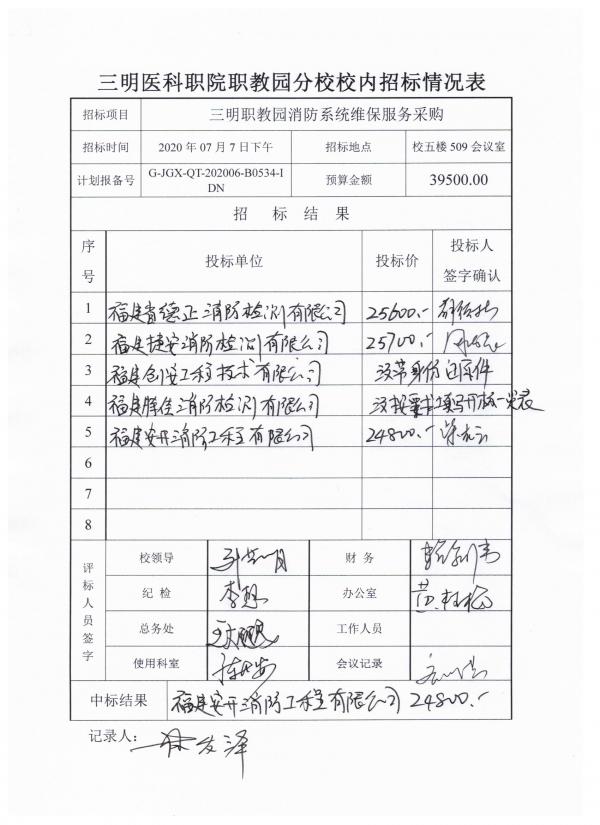 三明医科职院职教园分校校内招标情况表
招标项目 三明职教园消防系统维保服务采购
招标时间 2020 年 07 月 7 日下午 招标地点 校五楼 509 会议室
计划报备号 G-JGX-QT-202006-B0534-IDN 预算金额 39500.00
招 标 结 果
序号 投标单位 投标价 投标人签字确认
1 福建 德正消防检测有限公司 25600.-
2 福建捷安消防检测有限公司 25700.-
3 福建创安工程技术有限公司 没带身份证原件
4 福建 佳消防检测有限公司 没按要求填写开标一览表
5 福建安开消防工程有限公司 24800.-
6
7
8
评标人员签字
校领导 财 务
纪 检 李 办公室
总务处 工作人员
使用科室 会议记录
中标结果 福建安开消防工程有限公司 24800.-
记录人： 林发泽